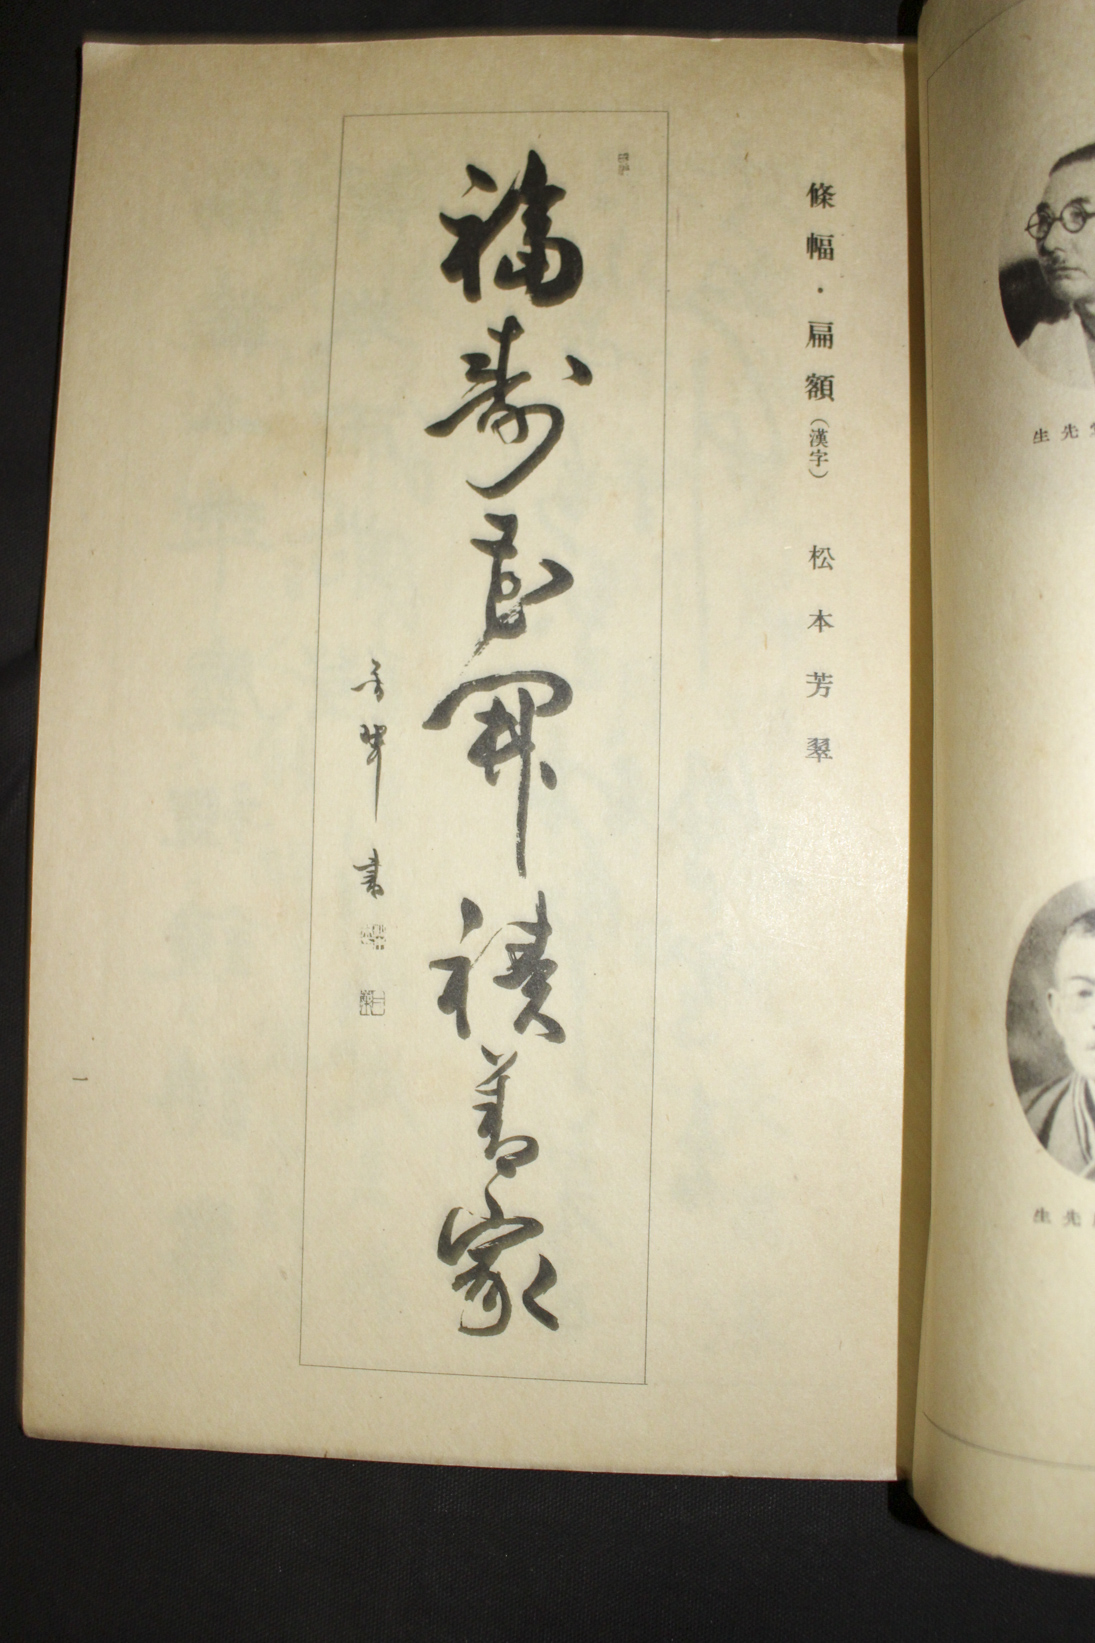 生先
生先
條幅・扁額(漢字) 松本芳翠
福壽長開積善家
芳翠書
一